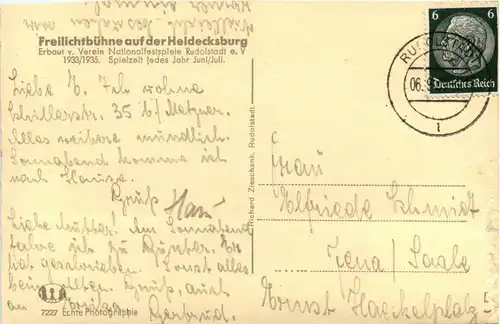 Freilichtbühne auf der Heidecksburg
Erbaut v. Verein Nationalfestspiele Rudolstadt e. V
1933/1935. Spielzeit jedes Jahr Juni/Juli.
Liebe E. Ich wohne
Schillerstr. 35 b/
Alles weitere mündlich.
Sonnabend komme ich
nach Hause.
Gruß
Liebe Mutter! Am Sonnabend
fahre ich zu Günter. Er
hat geschrieben. Sonst alles
beim alten. Gruß, auch
an
Gertrud.
7227 Echte Photographie
Richard Zieschank, Rudolstadt.
6 6
Deutsches Reich
RUDOLSTADT
06.9
i
Frau
Elfriede Schmidt
Jena/Saale
Ernst Haeckelplatz